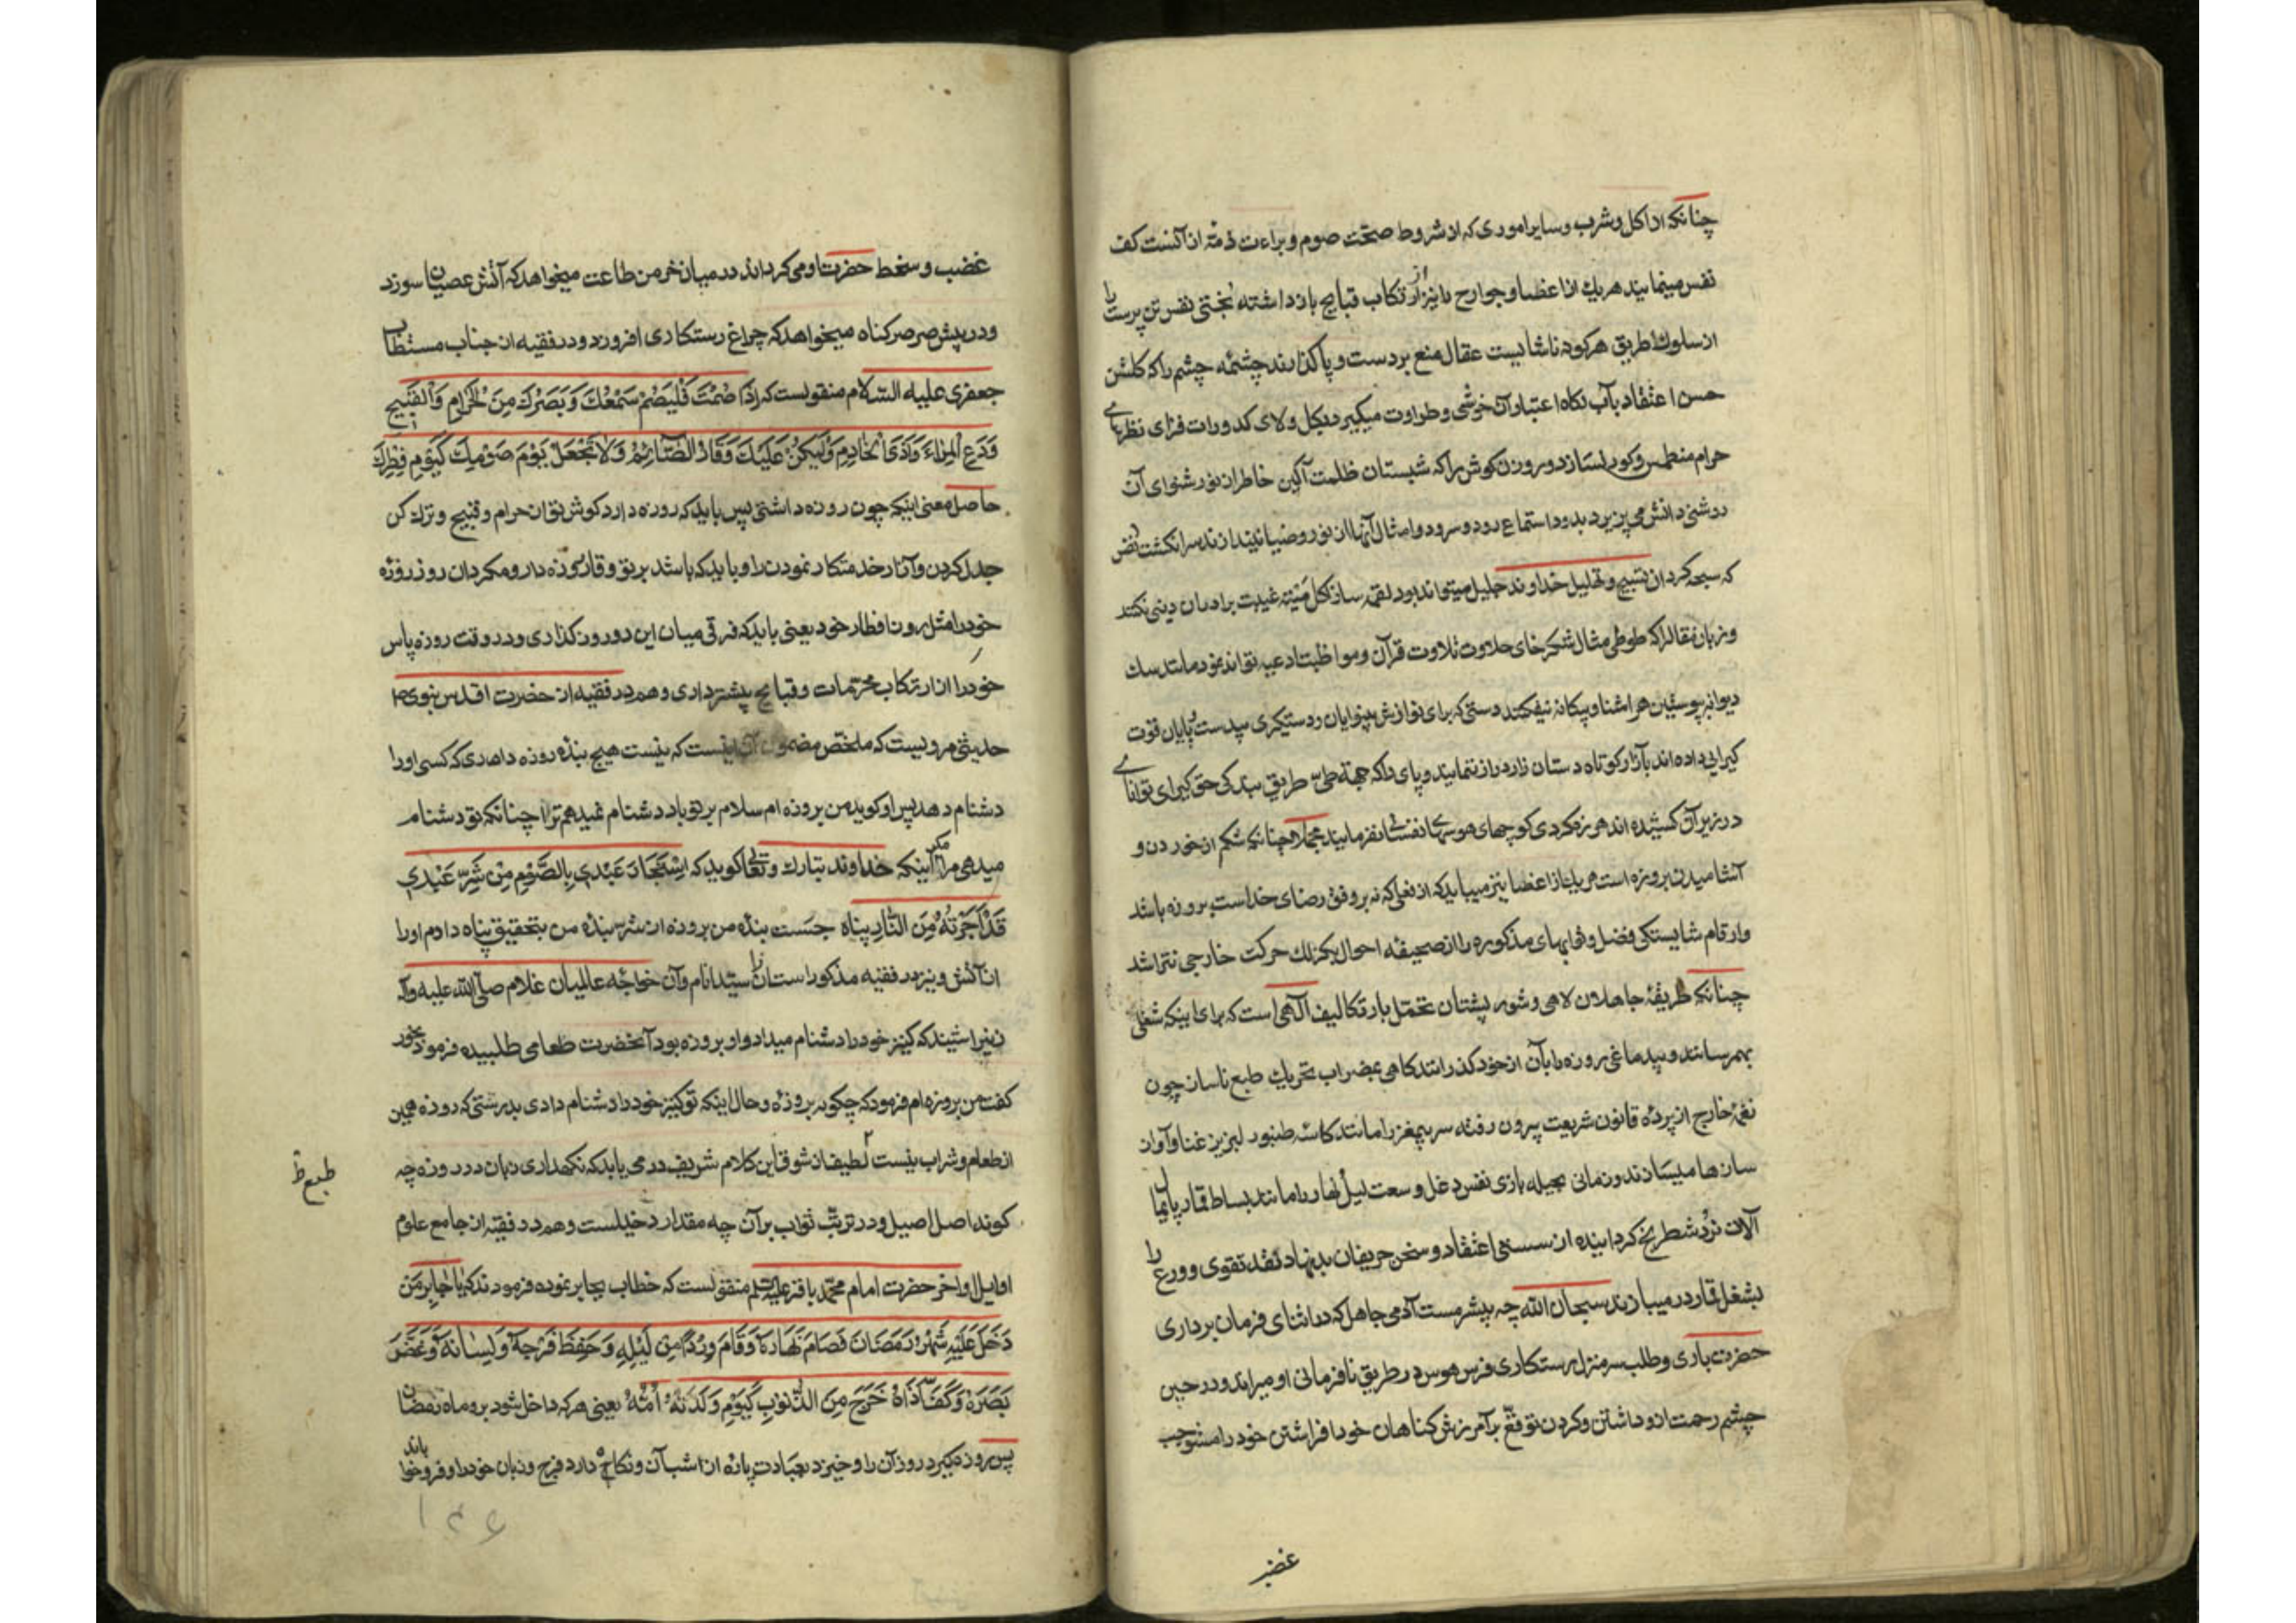 چنانکه از اکل و شرب و سایر اموری که از شروط صحّت صوم و براءت ذمّه از آنست کف
نفس مینمایند هر یك از اعضا و جوارح را نیز از ارتکاب قبایح باز داشته نفس تن پرست را
از سلوك طریق هر کوه ناشایست عقال منع بر دست و پا گذارند چشمهٔ چشم را که گلشن
حسن اعتقاد بآب نگاه اعتبار آن خوشی و طراوت میگیرد بگل و لای کدورات فزای نظرهای
حرام منطمس و کور نسازد و روزن گوش را که شبستان ظلمت آگین خاطر از نور شنوای آن
روشنی دانش می پزیرد بدود استماع رود و سرود و امثال آنها از نور و ضیا نیندازند سر انگشت
که سبحه گردان تسبیح و تهلیل خداوند جلیل میتواند بود لقمه ساز اکل میتهٔ غیبت برادران دینی نکند
و زبان مقال را که طوطی مثال شکرخای حلاوت تلاوت قرآن و مواظبت ادعیه تواند بود مانند سك
دیوانه پوستین هر اشنا و بیکانه نیفکند دستی که برای نوازش بینوایان و دستیکری بیدست و پایان قوت
کیرایی داده اند بآزار کوتاه دستان زار دراز ننمایند و پای را که جهة طیّ طریق بندکی حق کیرای توانای
در زیر آن کشیده اند هرزه کردی کوچهای هوسهای نفسانی نفرمایند مجملا همچنانکه شکم از خوردن و
آشامیدن بروزه است هر یك از اعضا نیز میباید که از فعلی که نه بر وفق رضای خداست بروزه باشد
و ارقام شایستکی فضل و ثوابهای مذکوره را از صحیفه احوال بکزلك حرکت خارجی نتراشد
چنانکه طریقهٔ جاهلان لاهی و شور پشتان تحمّل بار تکالیف آلهی است که برای اینکه شغلی
بهم رسانند و بیدماغی روزه را بآن از خود کذرانند کاهی بمضراب تحریك طبع ناساز چون
نغمهٔ خارج از پردهٔ قانون شریعت بیرون رفته سر بیمغز را مانند کاسه طنبور لبریز غنا و آواز
سازها میسازند و زمانی بحیله بازی نفس دغل وسعت لیل و نهار را مانند بساط قمار پایمال
آلات نرد و شطرنج کردانیده از سستی اعتقاد و سخن حریفان بدنهاد نقد تقوی و ورع را
بشغل قمار در میبازند سبحان الله چه بیشرمست آدمی جاهل که در اثنای فرمان برداری
حضرت باری و طلب سرمنزل رستکاری فرس هوس در طریق نافرمانی او میراند و در حین
چشم رحمت ازو داشتن و کردن توقع بر آمرزش کناهان خود افراشتن خود را مستوجب
غضب
غضب و سخط حضرت او می کرداند در میان خرمن طاعت میخواهد که آتش عصیان سوزد
و در پیش صرصر کناه میخواهد که چراغ رستکاری افروزد و در فقیه از جناب مستطاب
جعفری علیه السّلام منقولست که إِذَا صُمْتَ فَلْیَصُمْ سَمْعُكَ وَ بَصَرُكَ مِنَ الْحَرَامِ وَ الْقَبِیحِ
وَدَعِ الْمِرَاءَ وَ أَذَى الْخَادِمِ وَلْیَكُنْ عَلَیْكَ وَقَارُ الصَّائِمِ وَلَا تَجْعَلْ یَوْمَ صَوْمِكَ كَیَوْمِ فِطْرِكَ
حاصل معنی اینکه چون روزه داشتی پس باید که روزه دارد کوش تو از حرام و قبیح و ترك کن
جدل کردن و آزار خدمتکار نمودن را و باید که باشد بر تو وقار روزه دار و مکردان روز روزه
خود را مثل روز افطار خود یعنی باید که فرقی میان این دو روز کذاری و در وقت روزه پاس
خود را از ارتکاب محرّمات و قبایح بیشتر داری و هم در فقیه از حضرت اقدس نبوی
حدیثی مرویست که ملخّص مضمون آن اینست که نیست هیچ بندهٔ روزه داری که کسی او را
دشنام دهد پس او کوید من بروزه ام سلام بر تو باد دشنام نمیدهم ترا چنانکه تو دشنام
میدهی مرا مکر اینکه خداوند تبارك و تعالی کوید که اِسْتَجَارَ عَبْدِی بِالصَّوْمِ مِنْ شَرِّ عَبْدِی
قَدْ أَجَرْتُهُ مِنَ النَّارِ پناه جست بندهٔ من بروزه از شر بندهٔ من بتحقیق پناه دادم او را
از آتش و نیز در فقیه مذکور است که آن سیّد انام و آن خواجهٔ عالمیان غلام صلّی الله علیه وآله
زنی را شنید که کنیز خود را دشنام میداد و او بروزه بود آنحضرت طعامی طلبیده فرمود بخور
کفت من بروزه ام فرمود که چکونه بروزهٔ و حال اینکه تو کنیز خود را دشنام دادی بدرستی که روزه همین
از طعام و شراب نیست لطیف از شوق این کلام شریف در می یابد که نکهداری زبان در روزه چه
طبع ظ
کونه اصل اصیل و در ترتّب ثواب بر آن چه مقدار دخیلست و هم در فقیه از جامع علوم
اوایل و اخر حضرت امام محمّد باقر علیه السلم منقولست که خطاب بجابر نموده فرمودند که یَا جَابِرُ مَنْ
دَخَلَ عَلَیْهِ شَهْرُ رَمَضَانَ فَصَامَ نَهَارَهُ وَ قَامَ وِرْدًا مِنْ لَیْلِهِ وَ حَفِظَ فَرْجَهُ وَ لِسَانَهُ وَ غَضَّ
بَصَرَهُ وَ كَفَّ أَذَاهُ خَرَجَ مِنَ الذُّنُوبِ كَیَوْمِ وَلَدَتْهُ أُمُّهُ یعنی هر که داخل شود برو ماه رمضان
پس روزه گیرد روز آن را و خیزد بعبادت پارهٔ از شب آن و نکاه دارد فرج و زبان خود را و فرو خواباند
۱۴۶